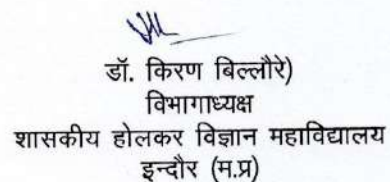 डॉ. किरण बिल्लौरे)
विभागाध्यक्ष
शासकीय होलकर विज्ञान महाविद्यालय
इन्दौर (म.प्र)